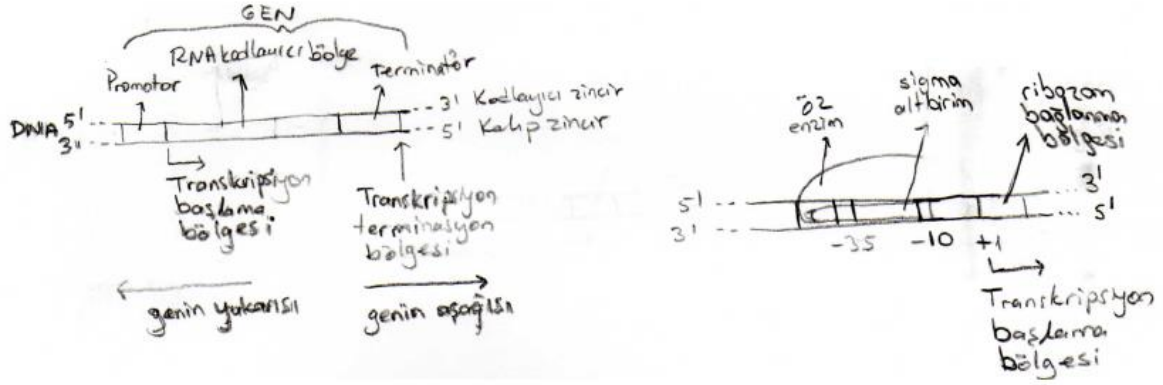 GEN
RNA kodlayıcı bölge
Promotor
Terminatör
DNA 5' 3' Kodlayıcı zincir
3' 5' Kalıp zincir
Transkripsiyon
başlama
bölgesi
Transkripsiyon
terminasyon
bölgesi
genin yukarısı
genin aşağısı
öz
enzim
sigma
altbirim
ribozom
bağlanma
bölgesi
5' 3'
3' 5'
-35 -10 +1
Transkripsiyon
başlama
bölgesi